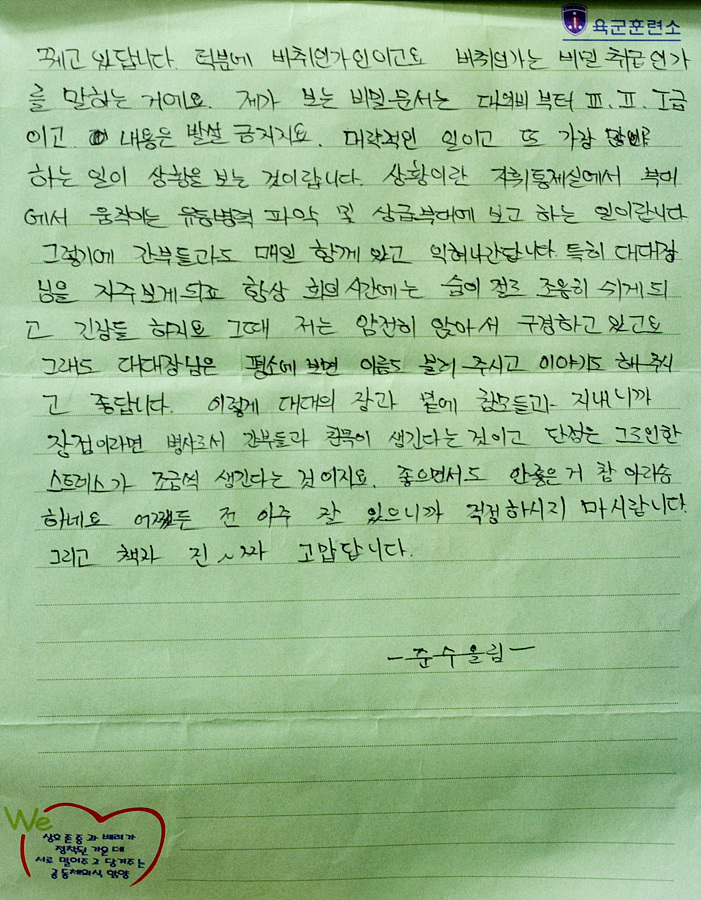 육군훈련소
꿰고 있답니다. 덕분에 비취인가인이고요 비취인가는 비밀 취급 인가
를 말하는 거에요. 제가 보는 비밀문서는 대외비부터 Ⅲ. Ⅱ. Ⅰ급
이고 내용은 발설 금지지요. 대략적인 일이고 또 가장 많이
하는 일이 상황을 보는 것이랍니다. 상황이란 지휘통제실에서 부대
에서 움직이는 유동병력 파악 및 상급부대에 보고 하는 일이랍니다
그렇기에 간부들과도 매일 함께 있고 익혀나간답니다. 특히 대대장
님을 자주보게되죠 항상 회의시간에는 숨이 절로 조용히 쉬게되
고 긴장들 하지요 그때 저는 얌전히 앉아서 구경하고 있고요
그래도 대대장님은 평소에 보면 이름도 불러 주시고 이야기도 해 주시
고 좋답니다. 이렇게 대대의 장과 옆에 참모들과 지내니까
장점이라면 병사로서 간부들과 친목이 생긴다는 것이고 단점은 그로인한
스트레스가 조금씩 생긴다는 것이지요. 좋으면서도 안좋은거 참 아리송
하네요 어쨌든 전 아주 잘 있으니까 걱정하시지 마시랍니다.
그리고 책자 진~짜 고맙답니다.
-준수올림-
We
상호존중과 배려가
정착된 가운데
서로 밀어주고 당겨주는
공동체의식 함양